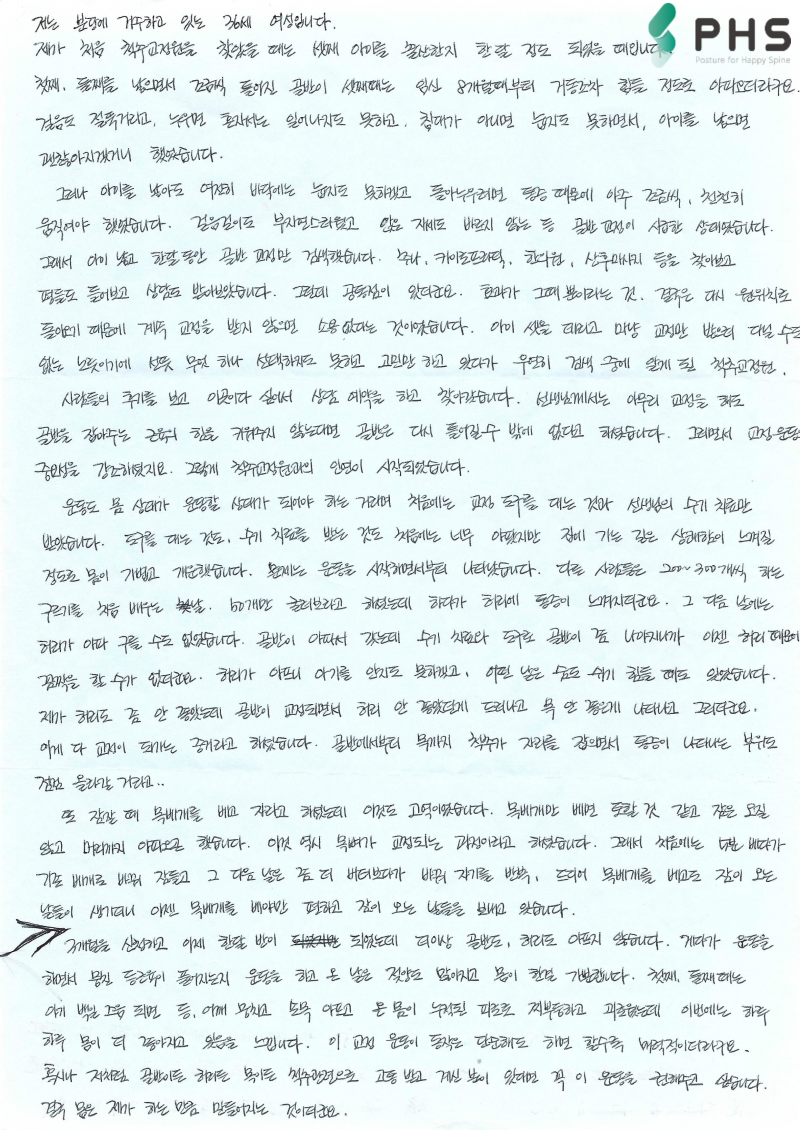 저는 분당에 거주하고 있는 36세 여성입니다.
PHS
Posture for Happy Spine
제가 처음 척추교정원을 찾았을 때는 셋째 아이를 출산한지 한 달 정도 되었을 때입니다
첫째, 둘째를 낳으면서 조금씩 틀어진 골반이 셋째때는 임신 8개월때부터 거동조차 힘들 정도로 아파오더라구요.
걸음도 절룩거리고, 누우면 혼자서는 일어나지도 못하고, 침대가 아니면 눕지도 못하면서, 아이를 낳으면
괜찮아지겠거니 했었습니다.
그러나 아이를 낳아도 여전히 바닥에는 눕지도 못하겠고 돌아누우려면 통증 때문에 아주 조금씩, 천천히
움직여야 했었습니다. 걸음걸이도 부자연스러웠고 앉은 자세도 바르지 않는 등 골반 교정이 시급한 상태였습니다.
그래서 아이 낳고 한달 동안 골반 교정만 검색했습니다. 추나, 카이로프라틱, 한의원, 산후마사지 등을 찾아보고
평들도 들어보고 상담도 받아보았습니다. 그런데 공통점이 있더군요. 효과가 그때 뿐이라는 것. 결국은 다시 원위치로
돌아오기 때문에 계속 교정을 받지 않으면 소용 없다는 것이었습니다. 아이 셋을 데리고 마냥 교정만 받으러 다닐 수도
없는 노릇이기에 선뜻 무엇 하나 선택하지도 못하고 고민만 하고 있다가 우연히 검색 중에 알게 된 척추교정원.
사람들의 후기를 보고 이곳이다 싶어서 상담 예약을 하고 찾아갔습니다. 선생님께서는 아무리 교정을 해도
골반을 잡아주는 근육의 힘을 키워주지 않는다면 골반은 다시 틀어질 수 밖에 없다고 하셨습니다. 그러면서 교정운동
중요성을 강조하셨지요. 그렇게 척추교정원과의 인연이 시작되었습니다.
운동도 몸 상태가 운동할 상태가 되어야 하는 거라며 처음에는 교정 도구를 대는 것과 선생님의 수기 치료만
받았습니다. 도구를 대는 것도, 수기 치료를 받는 것도 처음에는 너무 아팠지만 집에 가는 길은 상쾌함이 느껴질
정도로 몸이 가볍고 개운했습니다. 문제는 운동을 시작하면서부터 나타났습니다. 다른 사람들은 200~300개씩 하는
구르기를 처음 배우는 날. 50개만 굴러보라고 하셨는데 하다가 허리에 통증이 느껴지더군요. 그 다음 날에는
허리가 아파 구를 수도 없었습니다. 골반이 아파서 갔는데 수기 치료와 도구로 골반이 좀 나아지니까 이젠 허리 때문에
꼼짝을 할 수가 없더군요. 허리가 아프니 아기를 안지도 못하겠고, 어떤 날은 숨도 쉬기 힘들 때도 있었습니다.
제가 허리도 좀 안 좋았는데 골반이 교정되면서 허리 안 좋았던게 드러나고 목 안 좋은게 나타나고 그러더군요.
이게 다 교정이 되가는 증거라고 하셨습니다. 골반에서부터 목까지 척추가 자리를 잡으면서 통증이 나타나는 부위도
점점 올라갈 거라고..
또 잠잘 때 목베개를 베고 자라고 하셨는데 이것도 고역이었습니다. 목베개만 베면 토할 것 같고 잠은 오질
않고 머리까지 아파오곤 했습니다. 이것 역시 목뼈가 교정되는 과정이라고 하셨습니다. 그래서 처음에는 베다가
기존 베개로 바꿔 잠들고 그 다음 날은 좀 더 버텨보다가 바꿔 자기를 반복, 드디어 목베개를 베고도 잠이 오는
날들이 생기더니 이젠 목베개를 베야만 편하고 잠이 오는 날들을 보내고 있습니다.
3개월을 신청하고 이제 한달 반이 되었는데 더이상 골반도, 허리도 아프지 않습니다. 게다가 운동을
하면서 뭉친 등근육이 풀어지는지 운동을 하고 온 날은 젖양도 많아지고 몸이 한결 가볍습니다. 첫째, 둘째때는
아기 백일 즈음 되면 등, 어깨 뭉치고 손목 아프고 온 몸이 누적된 피로로 찌뿌둥하고 괴로웠는데 이번에는 하루
하루 몸이 더 좋아지고 있음을 느낍니다. 이 교정 운동이 동작은 단순해도 하면 할수록 매력적이더라구요.
혹시나 저처럼 골반이든 허리든 목이든 척추관련으로 고통 받고 계신 분이 있다면 꼭 이 운동을 권해주고 싶습니다.
결국 몸은 제가 하는만큼 만들어지는 것이더군요.